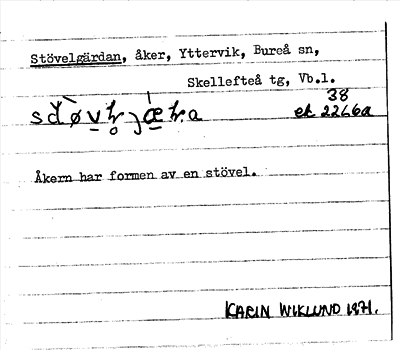 Stövelgärdan, åker, Yttervik, Bureå sn,
Skellefteå tg, Vb.l.
38
ek 2266a
Åkern har formen av en stövel.
KARIN WIKLUND 1971.